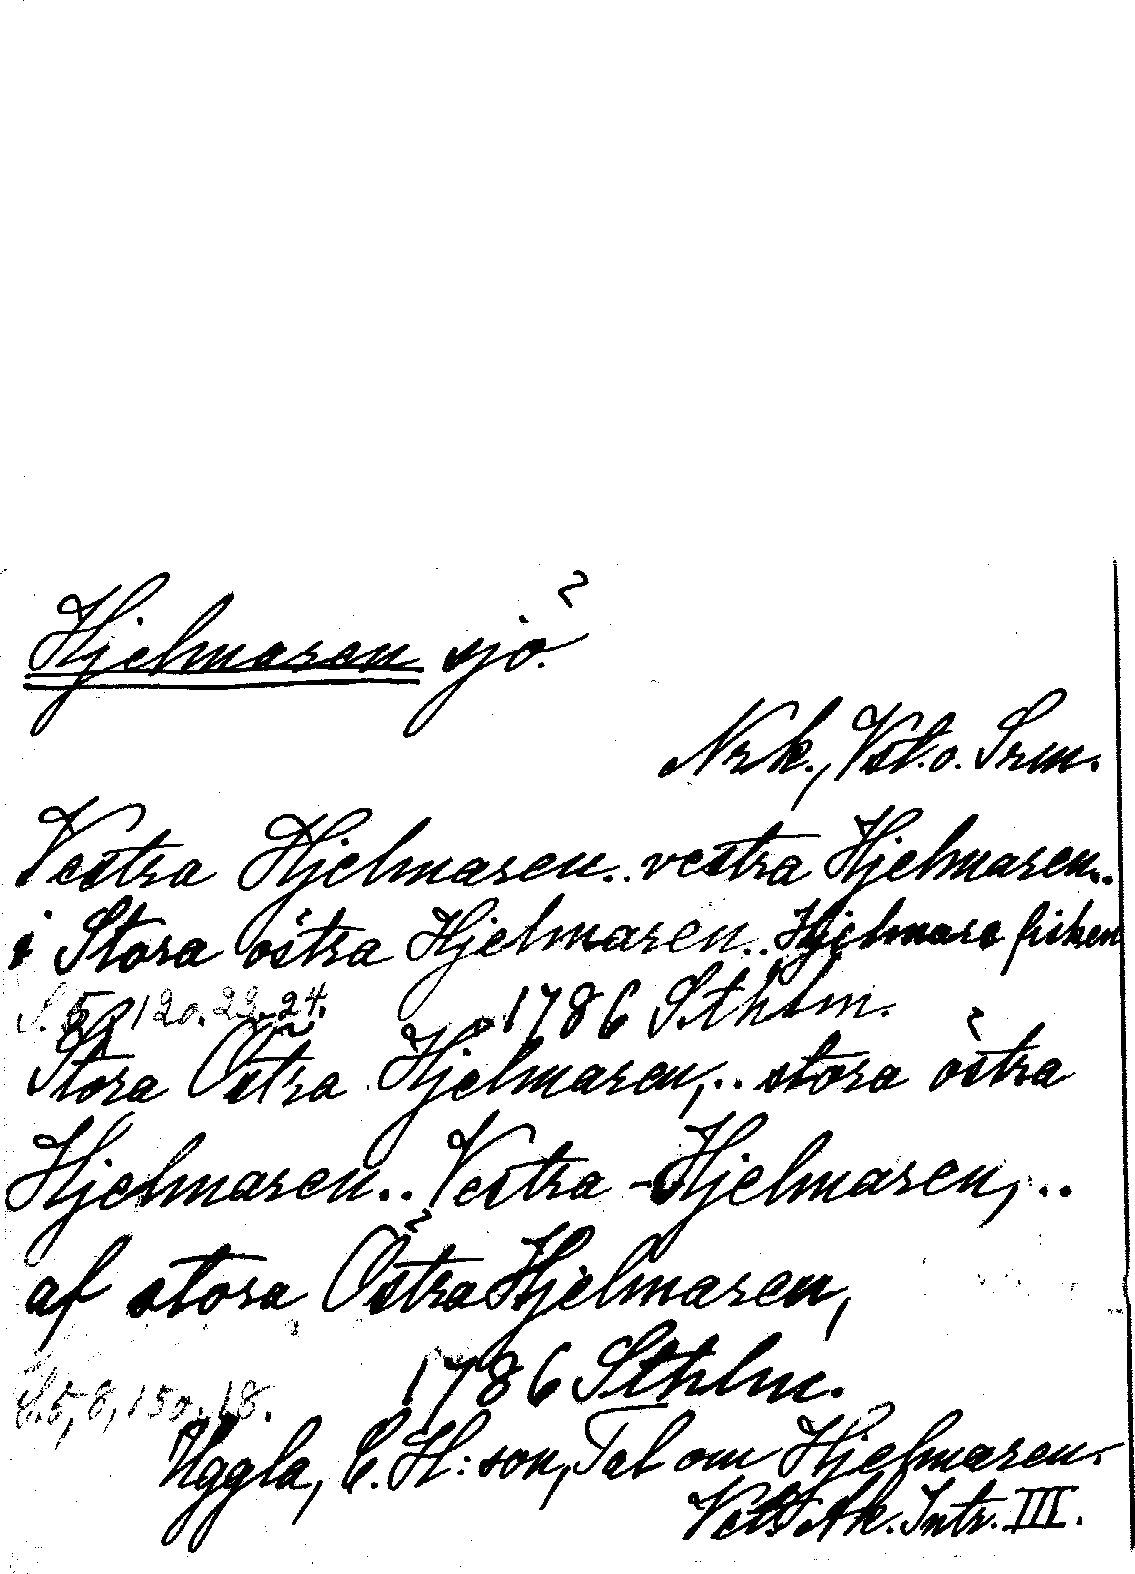 Hjelmaren sjö.
Nrk., Vstl. o. Srm.
Vestra Hjelmaren.. vestra Hjelmaren..
i Stora östra Hjelmaren.. Hjelmare fisken
1786 Sthlm.
Stora Östra Hjelmaren,.. stora östra
Hjelmaren.. Vestra-Hjelmaren,..
af stora Östra Hjelmaren,
1786 Sthlm.
Uggla, C. H:son, Tal om Hjelmaren.
Ak. Intr. III.